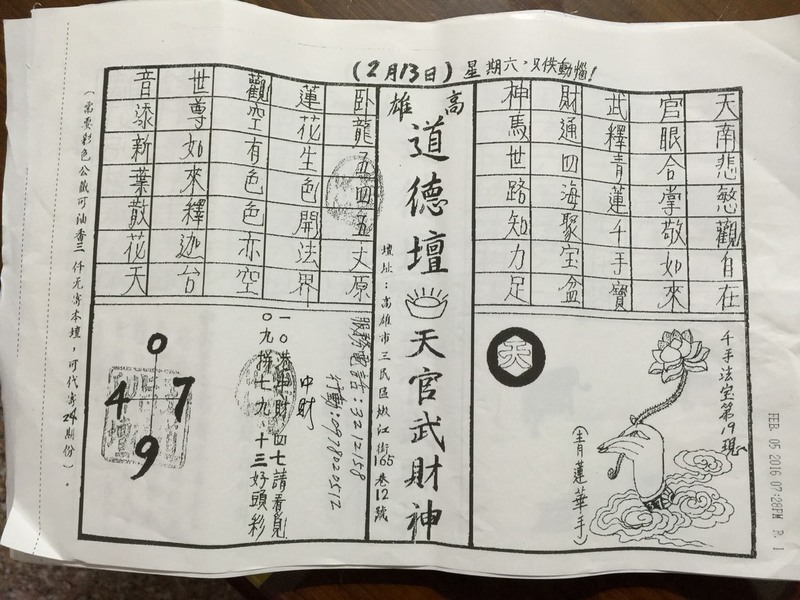 (2月13日)星期六,只供動惱!
天南悲愍觀自在
官眼合掌敬如來
武釋青蓮千手寶
財通四海聚宝盆
神馬世路知力足
千手法宝第19現
(青蓮華手)
高雄
道德壇
天官武財神
壇址:高雄市三民區嫩江街165巷12號
臥龍五四五丈原
蓮花生色開法界
觀空有色色亦空
世尊如來釋迦台
音添新葉散花天
服務電話:3212158
行動:0978220512
中財
一0港中財四七請看覓
0九拼七九十三好頭彩
0
4 7
9
(需要彩色公籤可油香三仟元寄本壇,可代寄24期份)。
FEB. 05 2016 07:28PM P. 1